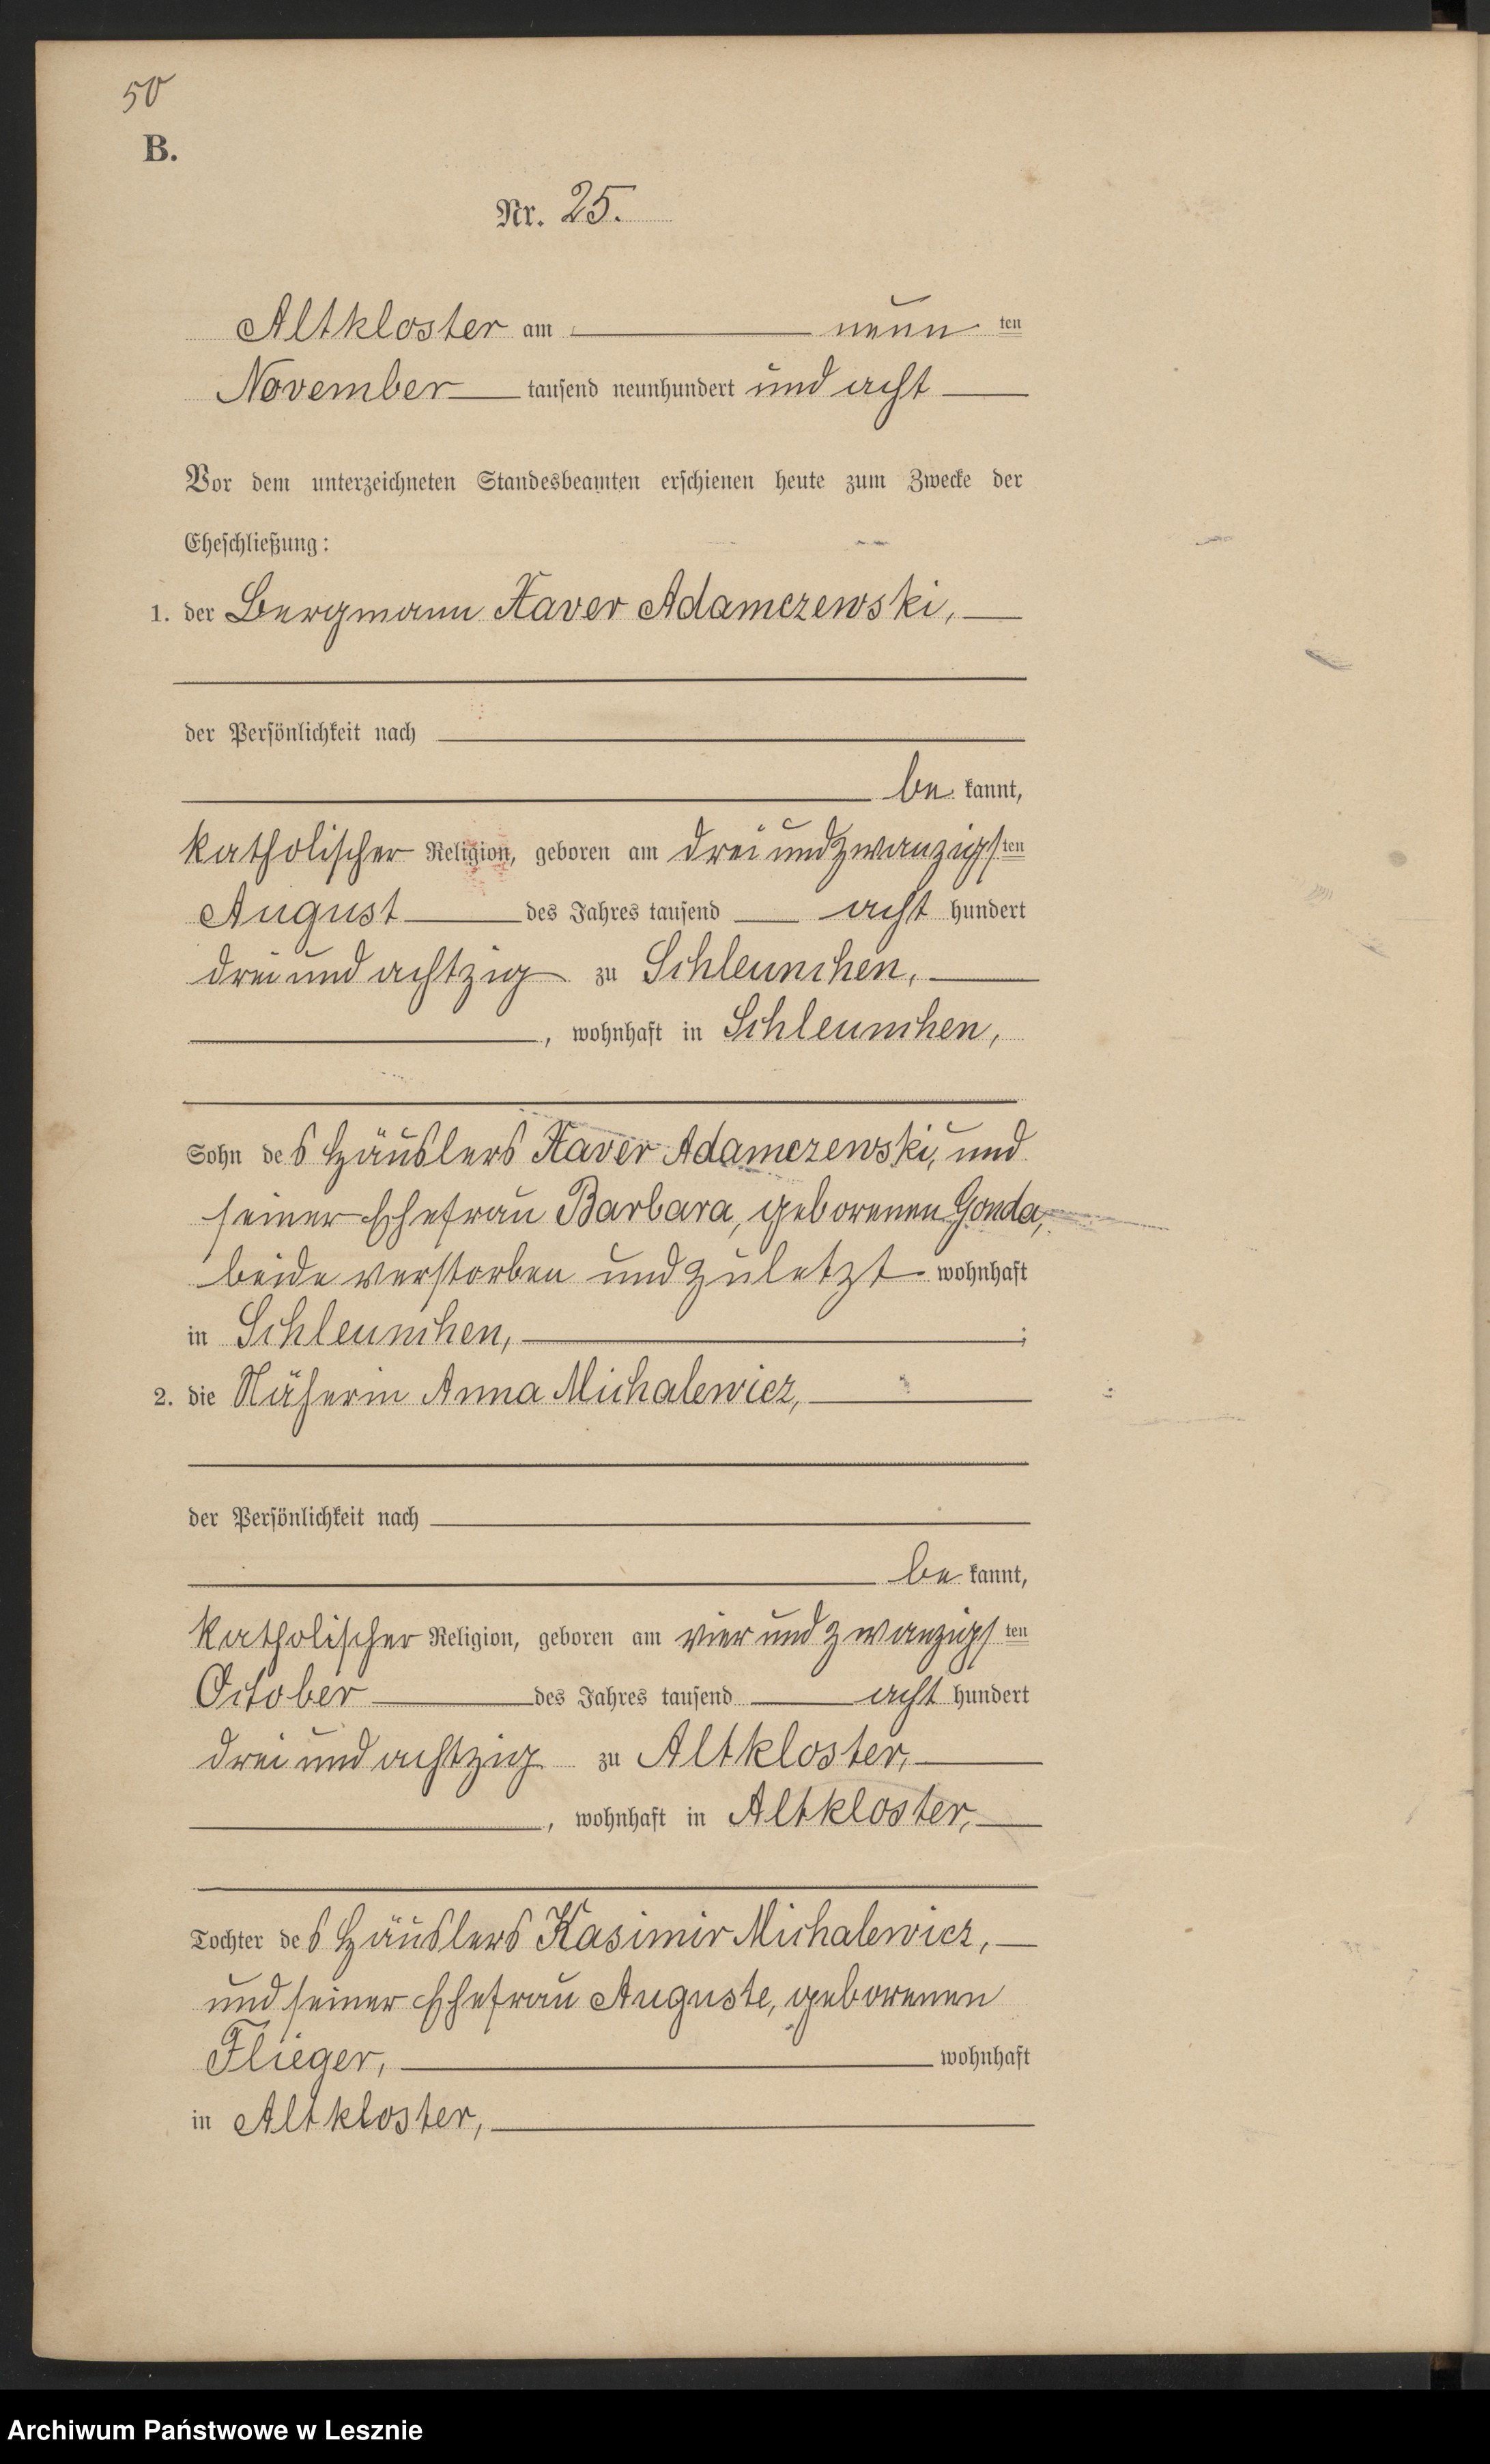 50
B.
Nr. 25.
Altkloster am neun ten
November tausend neunhundert und acht
Vor dem unterzeichneten Standesbeamten erschienen heute zum Zwecke der
Eheschließung:
1. der Bergmann Xaver Adamczewski,
der Persönlichkeit nach
be kannt,
katholischer Religion, geboren am dreiundzwanzigsten
August des Jahres tausend acht hundert
dreiundachtzig zu Schleunchen,
, wohnhaft in Schleunchen,
Sohn des Häuslers Xaver Adamczewski, und
seiner Ehefrau Barbara, geborenen Gonda,
beide verstorben und zuletzt wohnhaft
in Schleunchen, ;
2. die Näherin Anna Michalewicz,
der Persönlichkeit nach
be kannt,
katholischer Religion, geboren am vierundzwanzigsten
October des Jahres tausend acht hundert
dreiundachtzig zu Altkloster,
, wohnhaft in Altkloster,
Tochter des Häuslers Kasimir Michalewicz,
und seiner Ehefrau Auguste, geborenen
Flieger, wohnhaft
in Altkloster,
Archiwum Państwowe w Lesznie